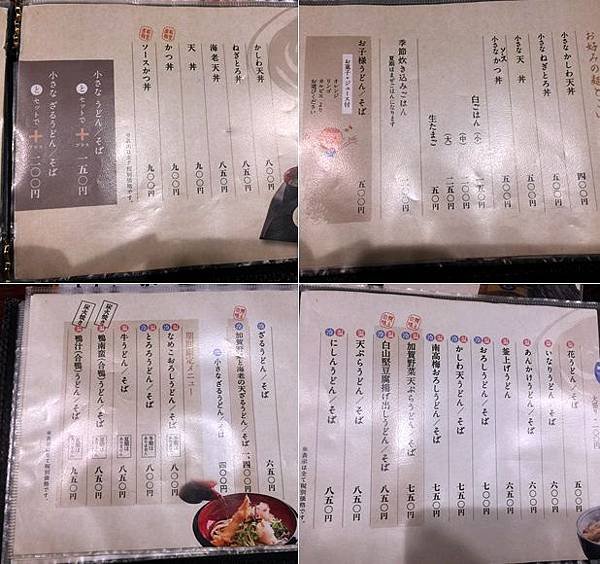 かしわ天丼 八〇〇円
ねぎとろ丼 八五〇円
海老天丼 八五〇円
天丼 九〇〇円
かつ丼 九〇〇円
ソースかつ丼 九〇〇円
※表示は全て税別価格です。
小さな うどん/そば
とセットで + 一五〇円
小さな ざるうどん/そば
とセットで + 二〇〇円
お好みの麺と
小さなかしわ天丼 四〇〇円
小さなねぎとろ丼 五五〇円
小さな天丼 五〇〇円
小さなソースかつ丼 五〇〇円
白ごはん (小) 一五〇円
(中)
(大) 二五〇円
生たまご 五〇円
季節炊き込みごはん
お子様うどん/そば 五〇〇円
お菓子・ジュース付
オレンジ
リンゴ
カルピス より
お選びください
冷 ざるうどん/そば 六五〇円
冷 加賀野菜と海老の天ざるうどん/そば 一、四〇〇円
冷 小さなざるうどん/そば 四〇〇円
期間限定メニュー
温 冷 なめこおろしうどん/そば 八〇〇円
温 冷 とろろうどん/そば 八〇〇円
温 牛うどん/そば 八五〇円
温 鴨南蛮(合鴨)うどん/そば 八五〇円
温 鴨汁(合鴨)うどん/そば 九五〇円
炭火焼き
炭火焼き
※表示は全て税別価格です。
温 花うどん/そば 五〇〇円
温 いなりうどん/そば 六〇〇円
温 あんかけうどん/そば 六五〇円
温 釜上げうどん 六五〇円
冷 おろしうどん/そば 七〇〇円
温 冷 かしわ天うどん/そば 七五〇円
温 冷 南高梅おろしうどん/そば 七五〇円
温 冷 加賀野菜天ぷらうどん/そば 七五〇円
温 冷 白山堅豆腐揚げ出しうどん/そば 八五〇円
温 冷 天ぷらうどん/そば 八五〇円
温 冷 にしんうどん/そば 八五〇円
※表示は全て税別価格です。